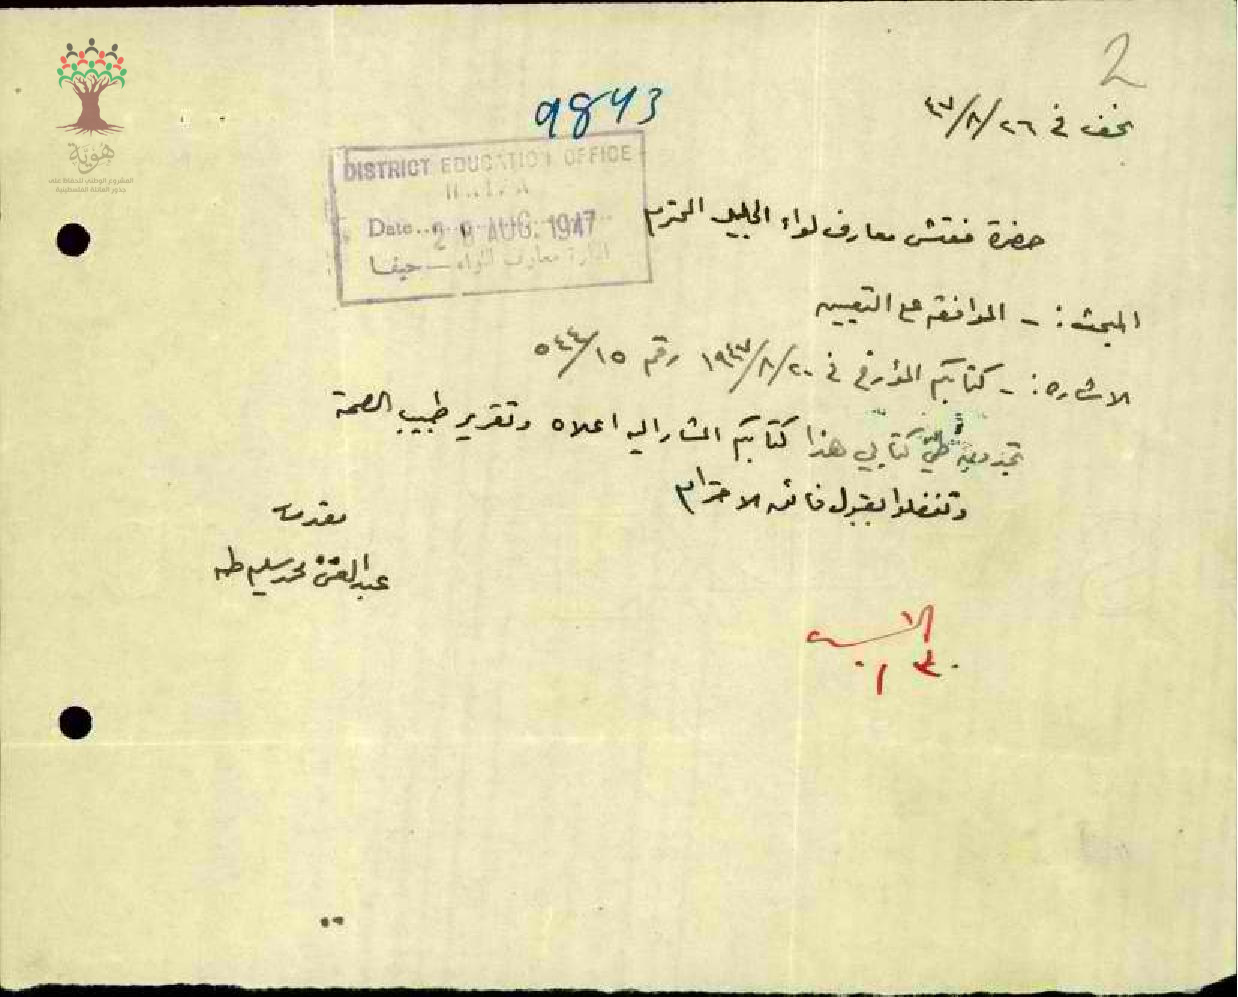 2
نحف في ٢٦/٨/٤٧
9843
DISTRICT EDUCATION OFFICE
Date 28 AUG. 1947
ادارة معارف اللواء — حيفا
حضرة مفتش معارف لواء الجليل المحترم
المبحث: - الموافقة على التعيين
الاشارة: - كتابكم المؤرخ في ٢٠/٨/١٩٤٧ رقم ١٥/٥٤٤
تجدون طي كتابي هذا كتابكم المشار اليه اعلاه وتقرير طبيب الصحة
وتفضلوا بقبول فائق الاحترام
مقدمه
محمد سليم طه
هوية
المشروع الوطني للحفاظ على
جذور العائلة الفلسطينية